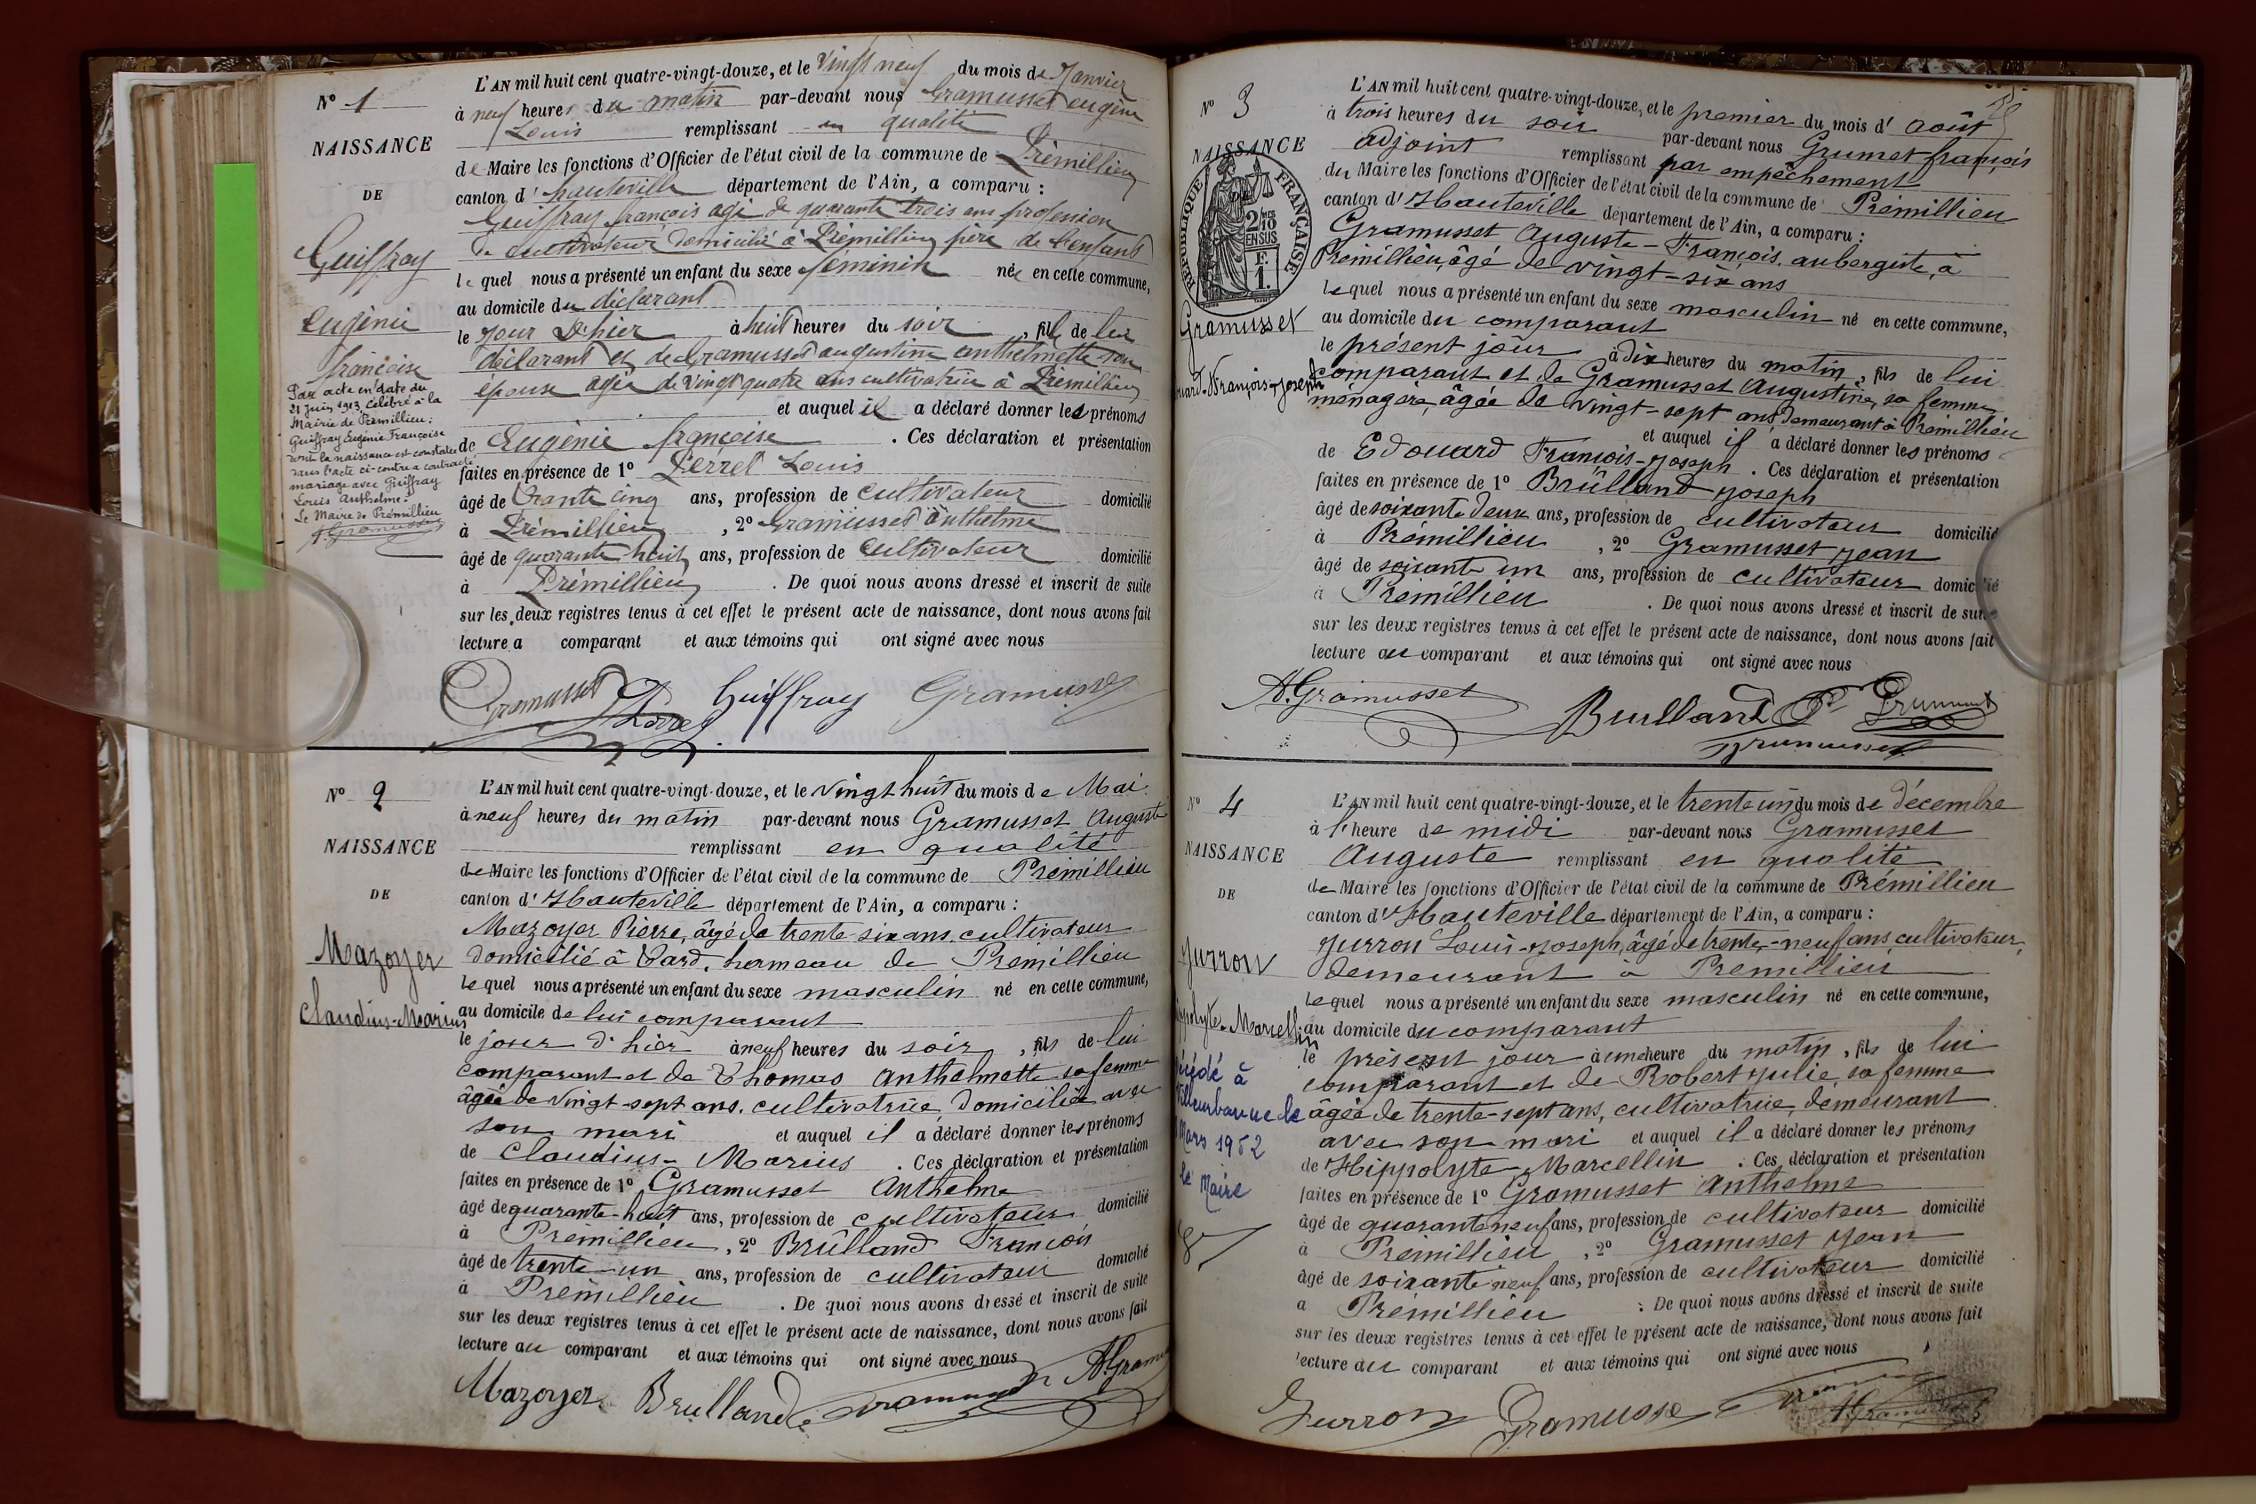 N° 1
NAISSANCE
DE
Guiffray
Eugénie
françoise
Par acte en date du
21 juin 1913, célébré à la
Mairie de Prémillieu :
Guiffray Eugénie Françoise
dont la naissance est constatée
dans l'acte ci-contre a contracté
mariage avec Guiffray
Louis Anthelme.
Le Maire de Prémillieu
A. Gramusset
L'AN mil huit cent quatre-vingt-douze, et le vingt neuf du mois de Janvier
à neuf heures du matin par-devant nous Gramusset eugène
Louis remplissant en qualité
de Maire les fonctions d'Officier de l'état civil de la commune de Prémillieu
canton d'hauteville département de l'Ain, a comparu :
Guiffray françois agé de quarante trois ans profession
de cultivateur domicilié à Prémillieu père de l'enfant
lequel nous a présenté un enfant du sexe féminin née en cette commune,
au domicile du déclarant
le jour d'hier à huit heures du soir, fille de lui
déclarant et de Gramusset augustine anthelmette son
épouse agée de vingt quatre ans cultivatrice à Prémillieu
et auquel il a déclaré donner les prénoms
de Eugénie françoise . Ces déclaration et présentation
faites en présence de 1° Perret Louis
âgé de trente cinq ans, profession de cultivateur domicilié
à Prémillieu, 2° Gramusset Anthelme
âgé de quarante huit ans, profession de cultivateur domicilié
à Prémillieu . De quoi nous avons dressé et inscrit de suite
sur les deux registres tenus à cet effet le présent acte de naissance, dont nous avons fait
lecture a comparant et aux témoins qui ont signé avec nous
Gramusset Perret Guiffray Gramusset
N° 2
NAISSANCE
DE
Mazoyer
Claudius-Marius
L'AN mil huit cent quatre-vingt-douze, et le vingt huit du mois de Mai
à neuf heures du matin par-devant nous Gramusset Auguste
remplissant en qualité
de Maire les fonctions d'Officier de l'état civil de la commune de Prémillieu
canton d'Hauteville département de l'Ain, a comparu :
Mazoyer Pierre, âgé de trente-six ans, cultivateur
domicilié à hameau de Prémillieu
lequel nous a présenté un enfant du sexe masculin né en cette commune,
au domicile de lui comparant
le jour d'hier à neuf heures du soir, fils de lui
comparant et de Thomas Anthelmette sa femme
âgée de vingt-sept ans, cultivatrice, domiciliée avec
son mari et auquel il a déclaré donner les prénoms
de Claudius-Marius . Ces déclaration et présentation
faites en présence de 1° Gramusset Anthelme
âgé de quarante-huit ans, profession de cultivateur domicilié
à Prémillieu, 2° Brûlland François
âgé de trente-un ans, profession de cultivateur domicilié
à Prémillieu . De quoi nous avons dressé et inscrit de suite
sur les deux registres tenus à cet effet le présent acte de naissance, dont nous avons fait
lecture au comparant et aux témoins qui ont signé avec nous
Mazoyer Brulland Gramusset A. Gramu
N° 3
NAISSANCE
RÉPUBLIQUE FRANÇAISE
2/10
EN SUS
F.
1.
Gramusset
ouard-François-Joseph
L'AN mil huit cent quatre-vingt-douze, et le premier du mois d'août
à trois heures du soir par-devant nous Grumet françois
adjoint remplissant par empêchement
du Maire les fonctions d'Officier de l'état civil de la commune de Prémillieu
canton d'Hauteville département de l'Ain, a comparu :
Gramusset Auguste-François, aubergiste, à
Prémillieu, âgé de vingt-six ans
lequel nous a présenté un enfant du sexe masculin né en cette commune,
au domicile du comparant
le présent jour à dix heures du matin, fils de lui
comparant et de Gramusset Augustine, sa femme
ménagère, âgée de vingt-sept ans, demeurant à Prémillieu
et auquel il a déclaré donner les prénoms
de Edouard François-Joseph . Ces déclaration et présentation
faites en présence de 1° Brûlland Joseph
âgé de soixante deux ans, profession de cultivateur domicilié
à Prémillieu, 2° Gramusset Jean
âgé de soixante un ans, profession de cultivateur domicilié
à Prémillieu . De quoi nous avons dressé et inscrit de suite
sur les deux registres tenus à cet effet le présent acte de naissance, dont nous avons fait
lecture au comparant et aux témoins qui ont signé avec nous
A. Gramusset Brulland Grumet
Gramusset
N° 4
NAISSANCE
DE
Jurron
ippolyte-Marcellin
Décédé à
Villeurbanne le
Mars 1962
Le Maire
L'AN mil huit cent quatre-vingt-douze, et le trente un du mois de décembre
à l'heure de midi par-devant nous Gramusset
Auguste remplissant en qualité
de Maire les fonctions d'Officier de l'état civil de la commune de Prémillieu
canton d'Hauteville département de l'Ain, a comparu :
Jurron Louis-Joseph, âgé de trente-neuf ans, cultivateur,
demeurant à Prémillieu
lequel nous a présenté un enfant du sexe masculin né en cette commune,
au domicile du comparant
le présent jour à une heure du matin, fils de lui
comparant et de Robert Julie, sa femme
âgée de trente-sept ans, cultivatrice, demeurant
avec son mari et auquel il a déclaré donner les prénoms
de Hippolyte-Marcellin . Ces déclaration et présentation
faites en présence de 1° Gramusset Anthelme
âgé de quarante neuf ans, profession de cultivateur domicilié
à Prémillieu, 2° Gramusset Jean
âgé de soixante neuf ans, profession de cultivateur domicilié
à Prémillieu . De quoi nous avons dressé et inscrit de suite
sur les deux registres tenus à cet effet le présent acte de naissance, dont nous avons fait
lecture au comparant et aux témoins qui ont signé avec nous
Jurron Gramusset
A. Gramusset